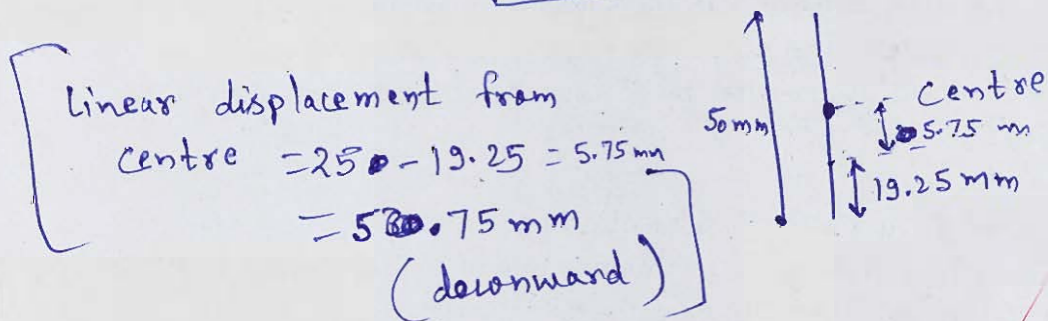 Linear displacement from
centre = 25 - 19.25 = 5.75 mm
= 5.75 mm
(downward)
50mm
Centre
5.75 mm
19.25 mm